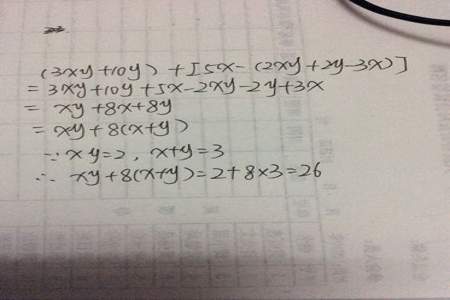 (3xy+10y)+[5x-(2xy+2y-3x)]
=3xy+10y+5x-2xy-2y+3x
=xy+8x+8y
=xy+8(x+y)
∵xy=2, x+y=3
∴xy+8(x+y)=2+8×3=26